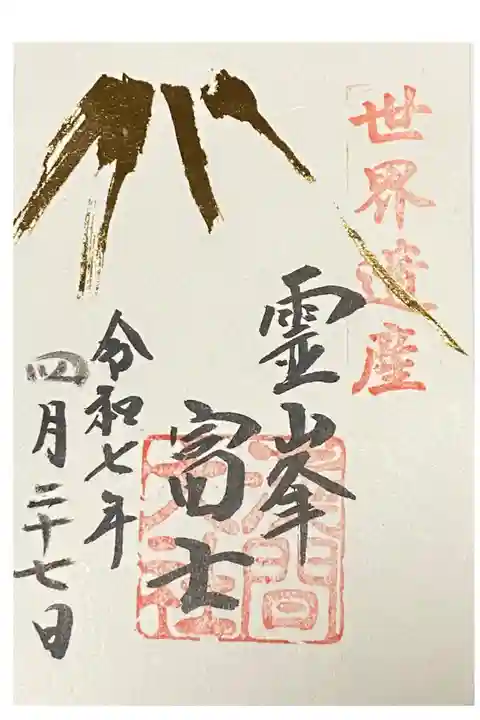 世界遺産
霊峯
富士
淺間
大社
令和七年
四月二十七日